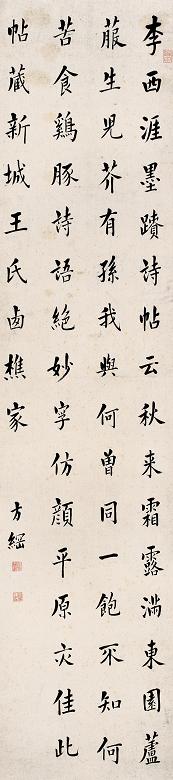 李西涯墨蹟詩帖云秋来霜露滿東園蘆
菔生兒芥有孫我與何曽同一飽不知何
苦食鷄豚詩語絶妙字仿顔平原亦佳此
帖蔵新城王氏卤樵家
方綱